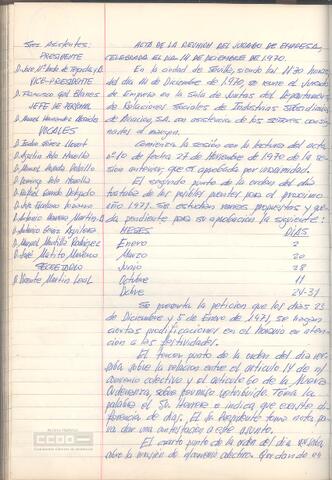 Sres. Asistentes:
PRESIDENTE
D. José Mª de Tejada y D.
VICE-PRESIDENTE
D. Francisco Gil Blanes
JEFE DE PERSONAL
D. Manuel Hernández
VOCALES
D. Isidro Pérez
D. Manuel Cabello
D. Domingo
D. Rafael Delgado
D. José Escolano
D. Antonio Herrero Martín
D. Antonio García Aguilera
D. Miguel Mantilla Rodríguez
D. José Matito Moreno
SECRETARIO
D. Vicente Martín Leal
ACTA DE LA REUNION DEL JURADO DE EMPRESA,
CELEBRADA EL DIA 14 DE DICIEMBRE DE 1970.
En la ciudad de Sevilla, siendo las 11'30 horas
del día 14 de Diciembre de 1970, se reune el Jurado
de Empresa en la Sala de Juntas del Departamento
de Relaciones Sociales de Industrias Subsidiarias
de Aviación, S.A. con asistencia de los señores consig-
nados al margen.
Comienza la sesión con la lectura del acta
nº 10 de fecha 27 de Noviembre de 1970 de la se-
sión anterior, que es aprobada por unanimidad.
El segundo punto de la orden del día
trataba de los posibles puentes para el próximo
año 1971. Se estudian varias propuestas y que-
da pendiente para su aprobación la siguiente:
MESES DIAS
Enero 2
Marzo 20
Junio 28
Octubre 11
Dcbre 24-31
Se presenta la petición que los días 23
de Diciembre y 5 de Enero de 1971, se hagan
ciertas modificaciones en el horario en aten-
ción a las festividades.
El tercer punto de la orden del día ver-
saba sobre la relación entre el artículo 14 de n/
convenio colectivo y el artículo 60 de la Nueva
Ordenanza, sobre permiso retribuido. Toma la
palabra el Sr. Herrero e indica que existe di-
ferencia de días. El Sr. Presidente toma nota pa-
ra dar una contestación a este asunto.
El cuarto punto de la orden del día versaba
sobre la revisión de convenio colectivo. Quedando en
Archivo Histórico
CCOO